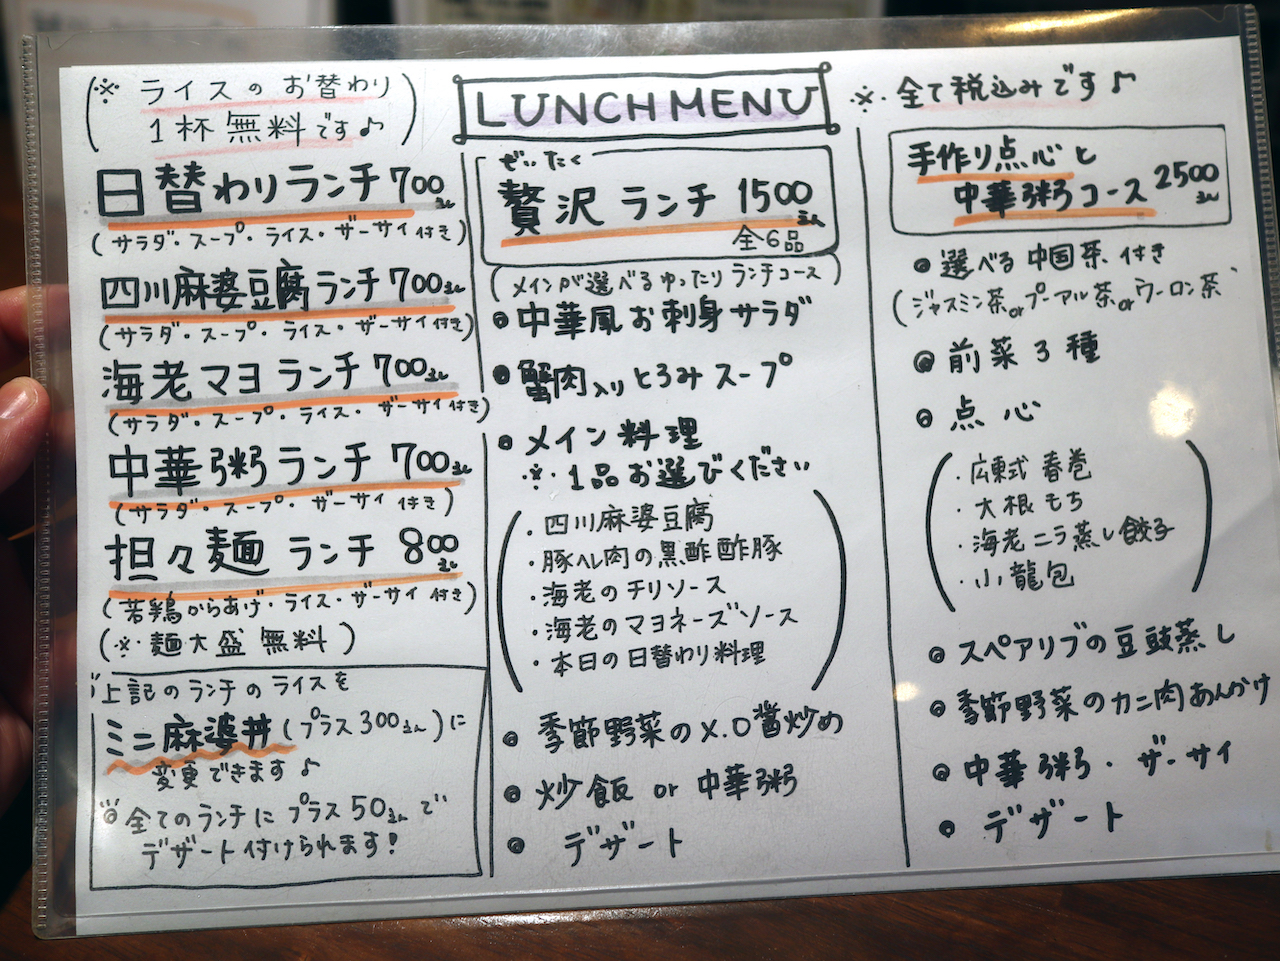 (※ ライスのお替わり
１杯無料です♪)
日替わりランチ 700えん
(サラダ・スープ・ライス・ザーサイ付き)
四川麻婆豆腐ランチ 700えん
(サラダ・スープ・ライス・ザーサイ付き)
海老マヨランチ 700えん
(サラダ・スープ・ライス・ザーサイ付き)
中華粥ランチ 700えん
(サラダ・スープ・ザーサイ付き)
担々麺ランチ 800えん
(若鶏からあげ・ライス・ザーサイ付き)
(※麺大盛無料)
上記のランチのライスを
ミニ麻婆丼(プラス300えん)に
変更できます♪
全てのランチにプラス50えんで
デザート付けられます!
LUNCH MENU
ぜいたく
贅沢ランチ 1500えん
全6品
(メインが選べるゆったりランチコース)
● 中華風お刺身サラダ
● 蟹肉入りとろみスープ
● メイン料理
※1品お選びください
・四川麻婆豆腐
・豚ヘレ肉の黒酢酢豚
・海老のチリソース
・海老のマヨネーズソース
・本日の日替わり料理
● 季節野菜のX.O醤炒め
● 炒飯 or 中華粥
● デザート
※全て税込みです♪
手作り点心と
中華粥コース 2500えん
● 選べる中国茶付き
(ジャスミン茶orプーアル茶orウーロン茶)
● 前菜3種
● 点心
・広東式春巻
・大根もち
・海老ニラ蒸し餃子
・小龍包
● スペアリブの豆豉蒸し
● 季節野菜のカニ肉あんかけ
● 中華粥・ザーサイ
● デザート